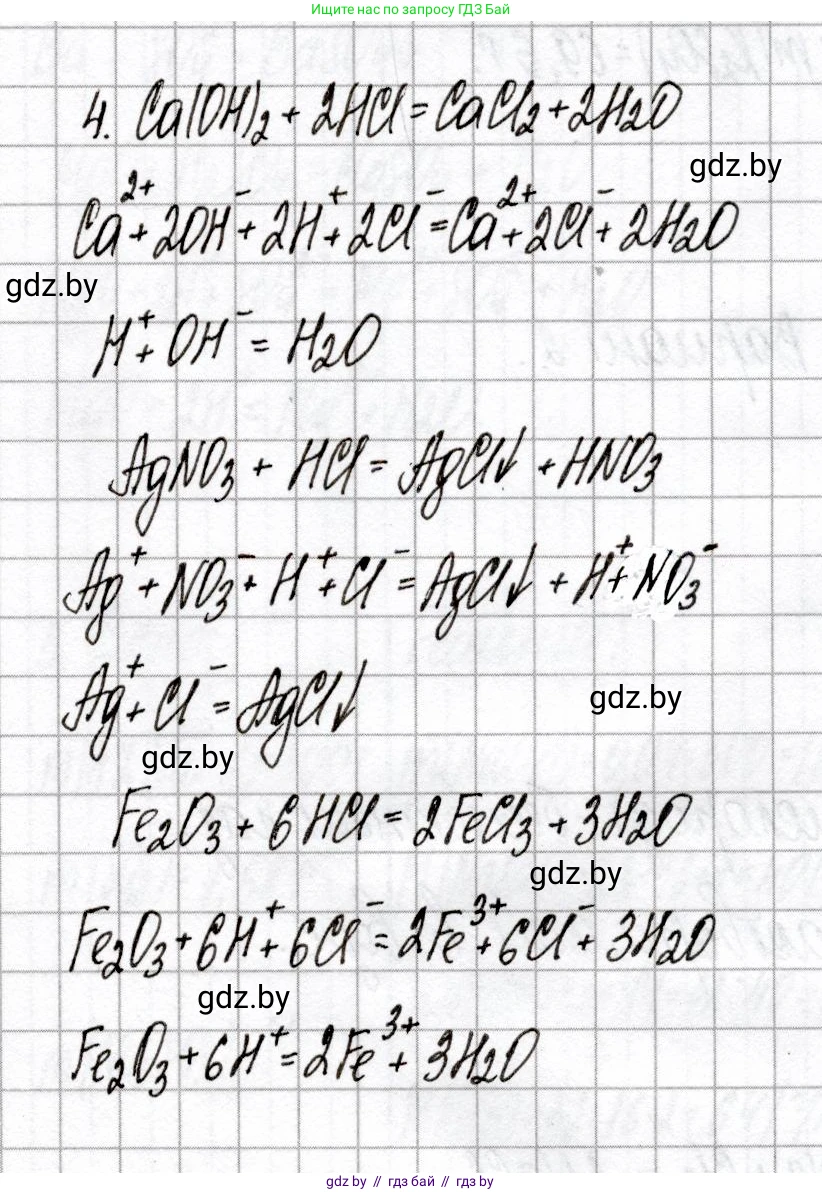 Ищите нас по запросу ГДЗ Бай
4. Ca(OH)₂ + 2HCl = CaCl₂ + 2H₂O
gdz.by
Ca²⁺ + 2OH⁻ + 2H⁺ + 2Cl⁻ = Ca²⁺ + 2Cl⁻ + 2H₂O
gdz.by
H⁺ + OH⁻ = H₂O
AgNO₃ + HCl = AgCl↓ + HNO₃
Ag⁺ + NO₃⁻ + H⁺ + Cl⁻ = AgCl↓ + H⁺ + NO₃⁻
Ag⁺ + Cl⁻ = AgCl↓
gdz.by
gdz.by
Fe₂O₃ + 6HCl = 2FeCl₃ + 3H₂O
gdz.by
Fe₂O₃ + 6H⁺ + 6Cl⁻ = 2Fe³⁺ + 6Cl⁻ + 3H₂O
gdz.by
Fe₂O₃ + 6H⁺ = 2Fe³⁺ + 3H₂O
gdz.by // гдз бай // гдз by